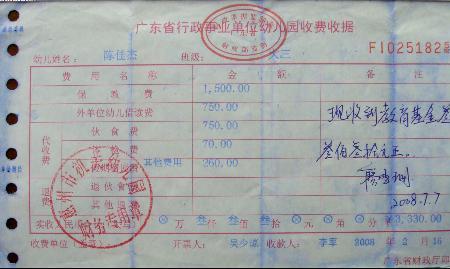 广东省行政事业单位幼儿园收费收据
FI025182
幼儿姓名: 陈佳杰 班级: 大三
费用名称 金额 备注
保教费 1,500.00
外单位幼儿借读费 750.00
代收费
伙食费 750.00
70.00
其他费用 260.00
退费
退伙食费
其他退费
现收到教育基金叁
叁佰叁拾元正。
2008.7.7
实收人民币 万 叁 仟 叁 佰 叁 拾 元 角 分 ¥3,330.00
收费单位(盖章): 开票人: 吴少琼 收款人: 李军 2008 年 2 月 16
广东省财政厅
惠州市 幼儿园
财务专用章